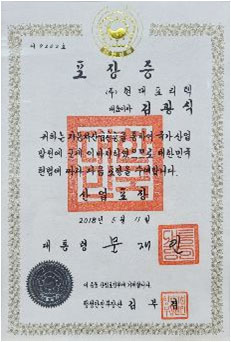 제 9222 호
포 장 증
(주) 현대포리텍
대표이사 김 광 식
귀하는 를 통하여 국가 산업
발전에 크게 이바지하였으므로 대한민국
헌법에 따라 다음 포장을 수여합니다
산 업 포 장
2018년 5월 11일
대 통 령 문 재 인
이 증을 기입합니다
행정안전부장관 김 부 겸